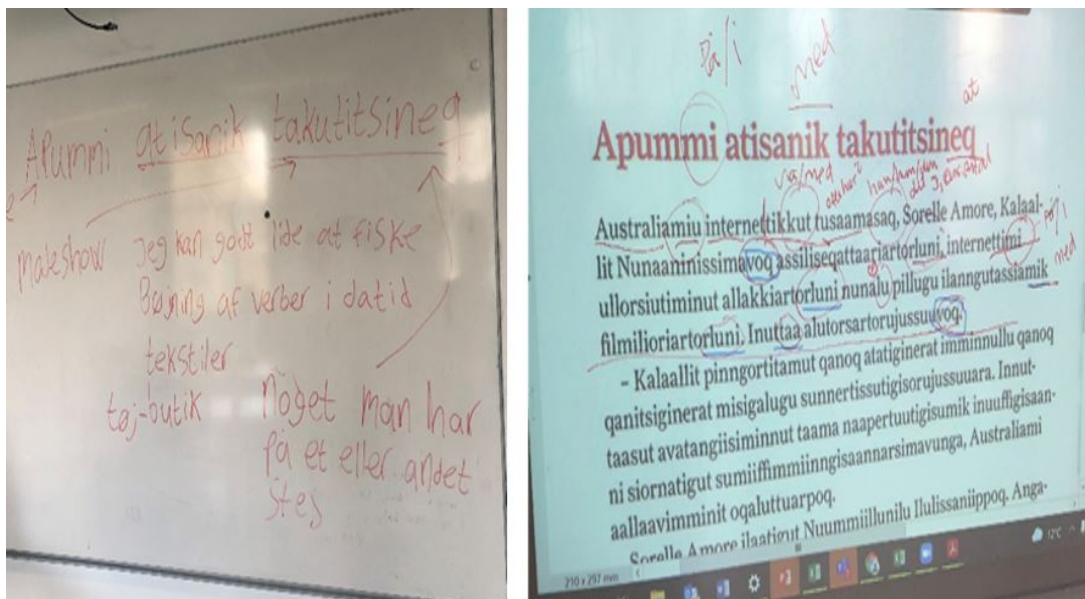 Apummi atisanik takutitsineq
mateshow
Jeg kan godt lide at fiske
Bøjning af verber i datid
tekstiler
tøj-butik
noget man har
på et eller andet
sted
På/i
med
at
Apummi atisanik takutitsineq
via/med
Australiamiu internettikkut tusaamasaq, Sorelle Amore, Kalaal-
på/i
lit Nunaaninissimavoq assiliseqattaariartorluni, internettimi
med
ullorsiutiminut allakkiartorluni nunalu pillugu ilanngutassiamik
filmilioriartorluni. Inuttaa alutorsartorujussuuvoq.
– Kalaallit pinngortitamut qanoq atatiginerat imminnullu qanoq
qanitsiginerat misigalugu sunnertissutigisorujussuuara. Innut-
taasut avatangiisiminnut taama naapertuutigisumik inuuffigisaan-
ni siornatigut sumiiffimmiinngisaannarsimavunga, Australiami
aallaavimminit oqaluttuarpoq.
Sorelle Amore ilaatigut Nuummiillunilu Ilulissaniippoq. Anga-
210 x 297 mm
12°C